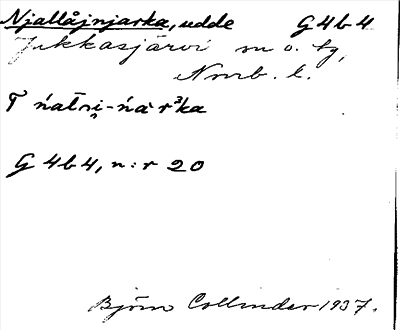 Njallåjnjarka, udde G4b4
Jukkasjärvi sn o. tg,
Norrb. l.
G4b4, n:r 20
Björn Collinder 1937.